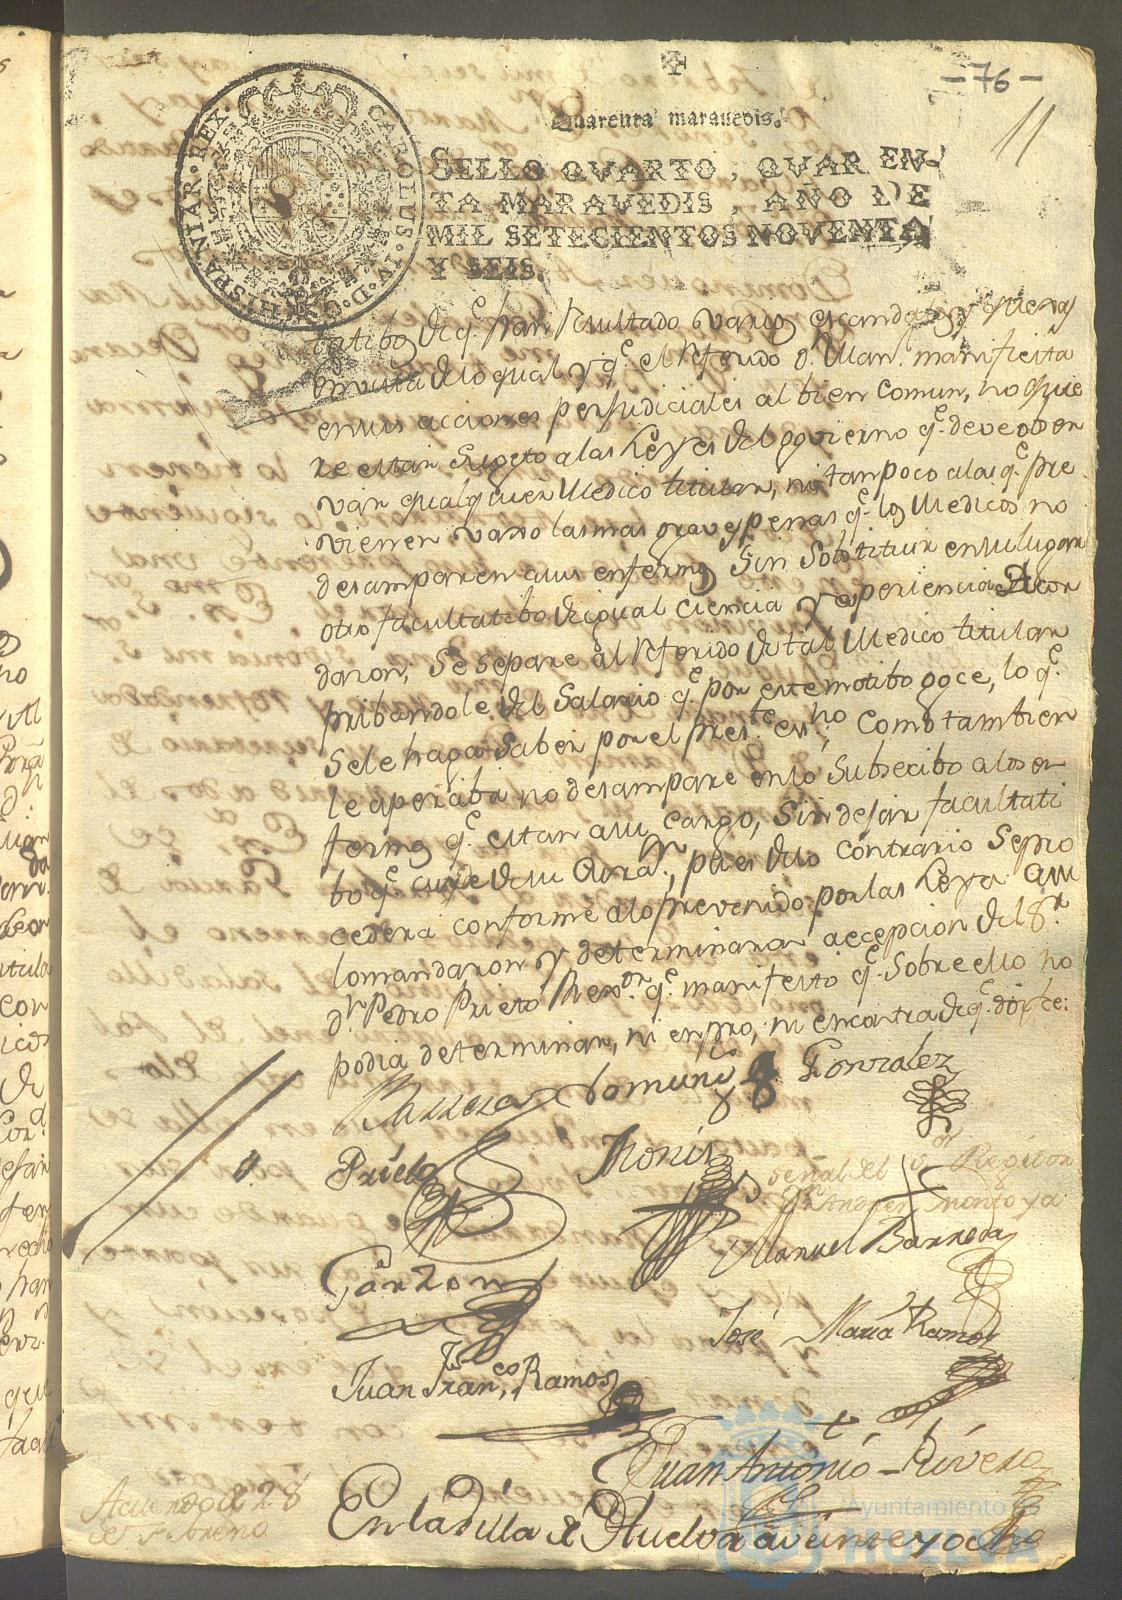 - 76 -
11
Quarenta marauedis.
SELLO QVARTO, QVAREN-
TA MARAVEDIS, AÑO DE
MIL SETECIENTOS NOVENTA
Y SEIS.
CAROLUS·IV·D·G·HISPANIAR·REX
tatibo, de q.e han resultado varios escandalos, y quexas
en vista de lo qual y q.e el referido d.n Man.l manifiesta
en sus acciones perjudiciales al bien comun, no quie
re estar sugeto a las Leyes del govierno q.e deve obser
var qualquier Medico titular, ni tampoco a las q.e pre
vienen vaxo las mas graves penas q.e los Medicos no
desamparen a sus enfermos sin sobstituir en su lugar
otro facultatibo de igual ciencia y experiencia: Acor
daron, se separe al referido de tal Medico titular
pribandole del Salario q.e por este motibo goce, lo q.e
se le haga saber por el pres.te es.no como tambien
le aperciba no desampare en lo subsecibo a los en
fermos q.e estan a su cargo, sin dejar facultati
bo q.e cuyde de su cura.n, pues de lo contrario se pro
cedera conforme a lo prevenido por las Leyes: Assi
lo mandaron y determinaron a ecepcion del S.r
d.n Pedro Prieto Rex.or q.e manifesto q.e sobre ello no
podia determinar, ni en pro, ni en contra de q.e doy fee:
Barrera Domung.z Gonzalez
Prieto
señal del S.or Rejidor
D.n Andres Montoya
Manuel Barreda
Garzon
José Maria Ramos
Juan Fran.co Ramos
Juan Antonio Rivero
Acuerdo de 28
de Febrero
En la Villa de Huelva a veinte y ocho
Ayuntamiento
HUELVA